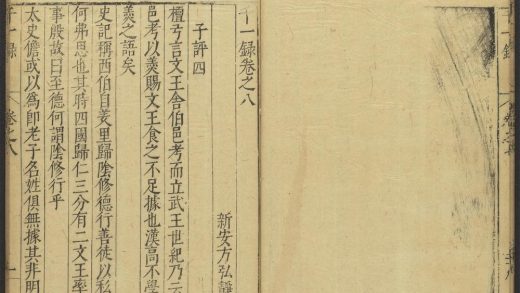 千一錄卷之八
新安方弘靜
子評四
檀弓言文王舍伯邑考而立武王世紀乃云
邑考以羹賜文王食之不足據也漢高不學
羹之語矣
史記稱西伯自羑里歸陰修德行善徒以私
何弗思也其時四國歸仁三分有二文王率
事殷故曰至德何謂陰修行乎
太史儋或以爲即老子名姓俱無據其非明
千一錄 卷之八 一